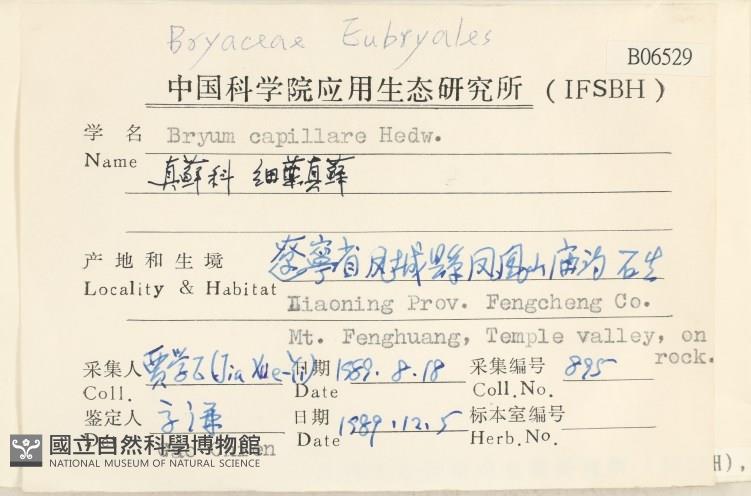 Bryaceae Eubryales
B06529
中国科学院应用生态研究所 (IFSBH)
学 名 Bryum capillare Hedw.
Name
真蘚科 細葉真蘚
产地和生境 寧省凤城縣凤凰山庙沟 石生
Locality & Habitat Liaoning Prov. Fengcheng Co.
Mt. Fenghuang, Temple valley, on
rock.
采集人 贾学乙 (Jia Xue-Yi) 日期 1989.8.18 采集编号 895
Coll. Date Coll.No.
鉴定人 日期 1989.12.5 标本室编号
Date Herb.No.
國立自然科學博物館
NATIONAL MUSEUM OF NATURAL SCIENCE
H),